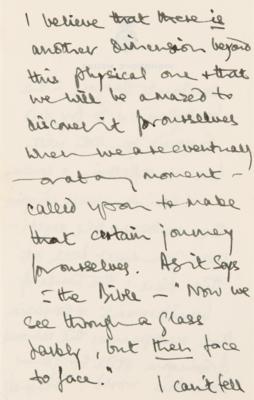 I believe that there is
another dimension beyond
this physical one + that
we will be amazed to
discover it for ourselves
when we are eventually
– or at any moment –
called upon to make
that certain journey
for ourselves. As it says
in the Bible – "Now we
see through a glass
darkly, but then face
to face." I can't tell